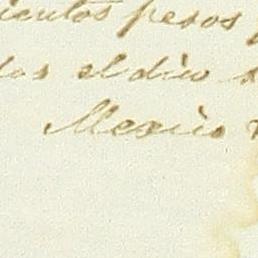 cientos pesos
dos el dia
Mexico